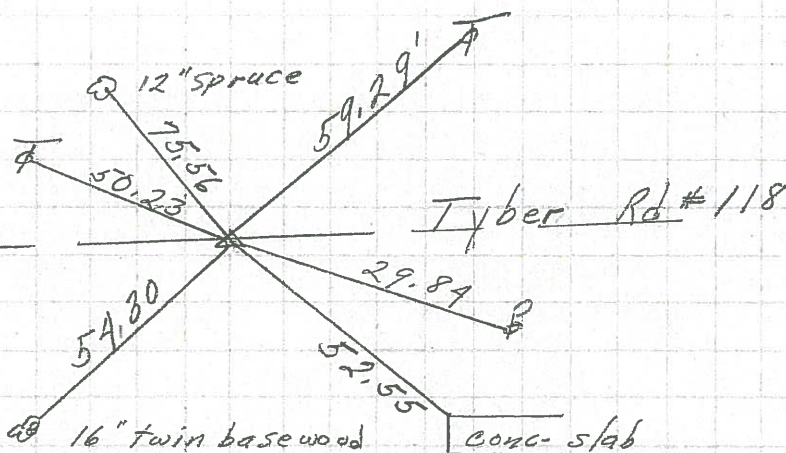 12" spruce
59.29'
75.56
50.23
Tyber Rd #118
29.84
54.30
52.55
16" twin basewood
conc-slab